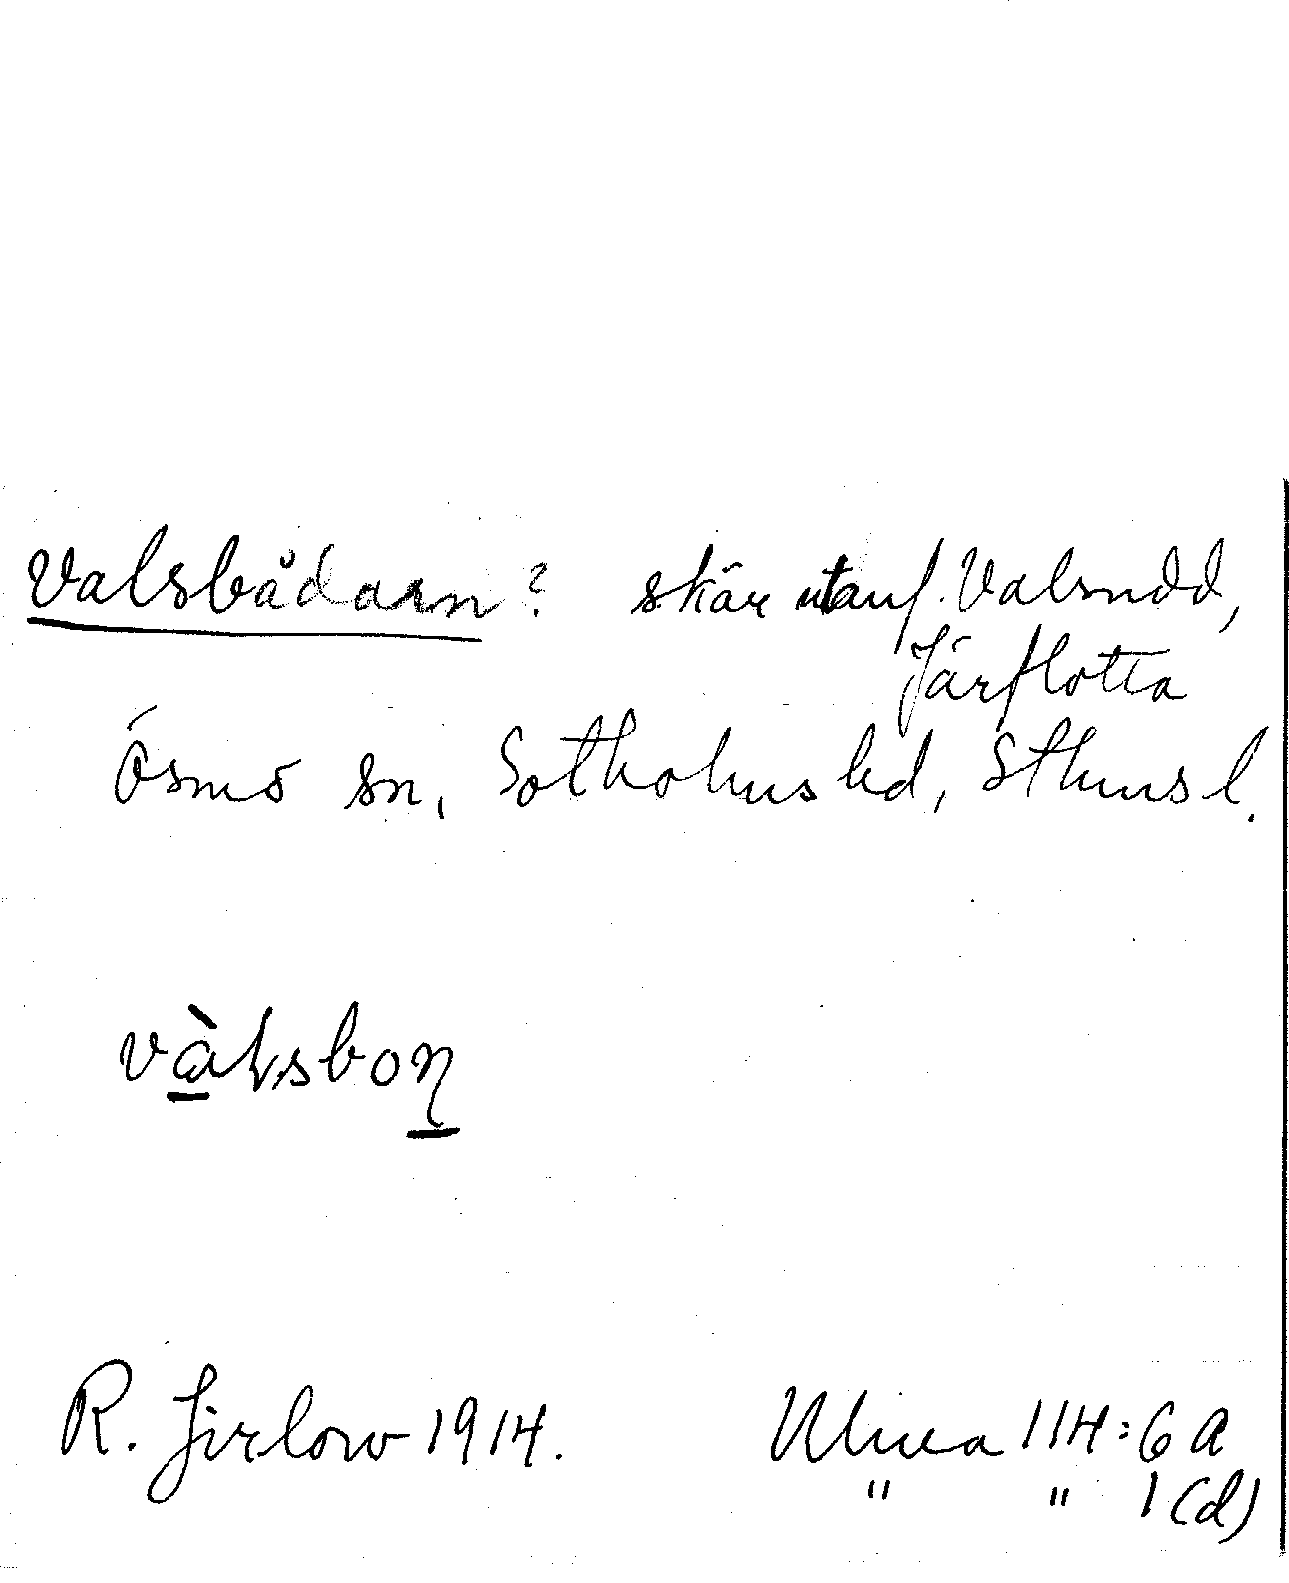 Valsbådarn? skär utanf. Valsudd,
Järflotta
Ösmo sn, Sotholms hd, Sthms l.
vàlsboƞ
R. Jirlow 1914.
114:6 A
" " 1(d)